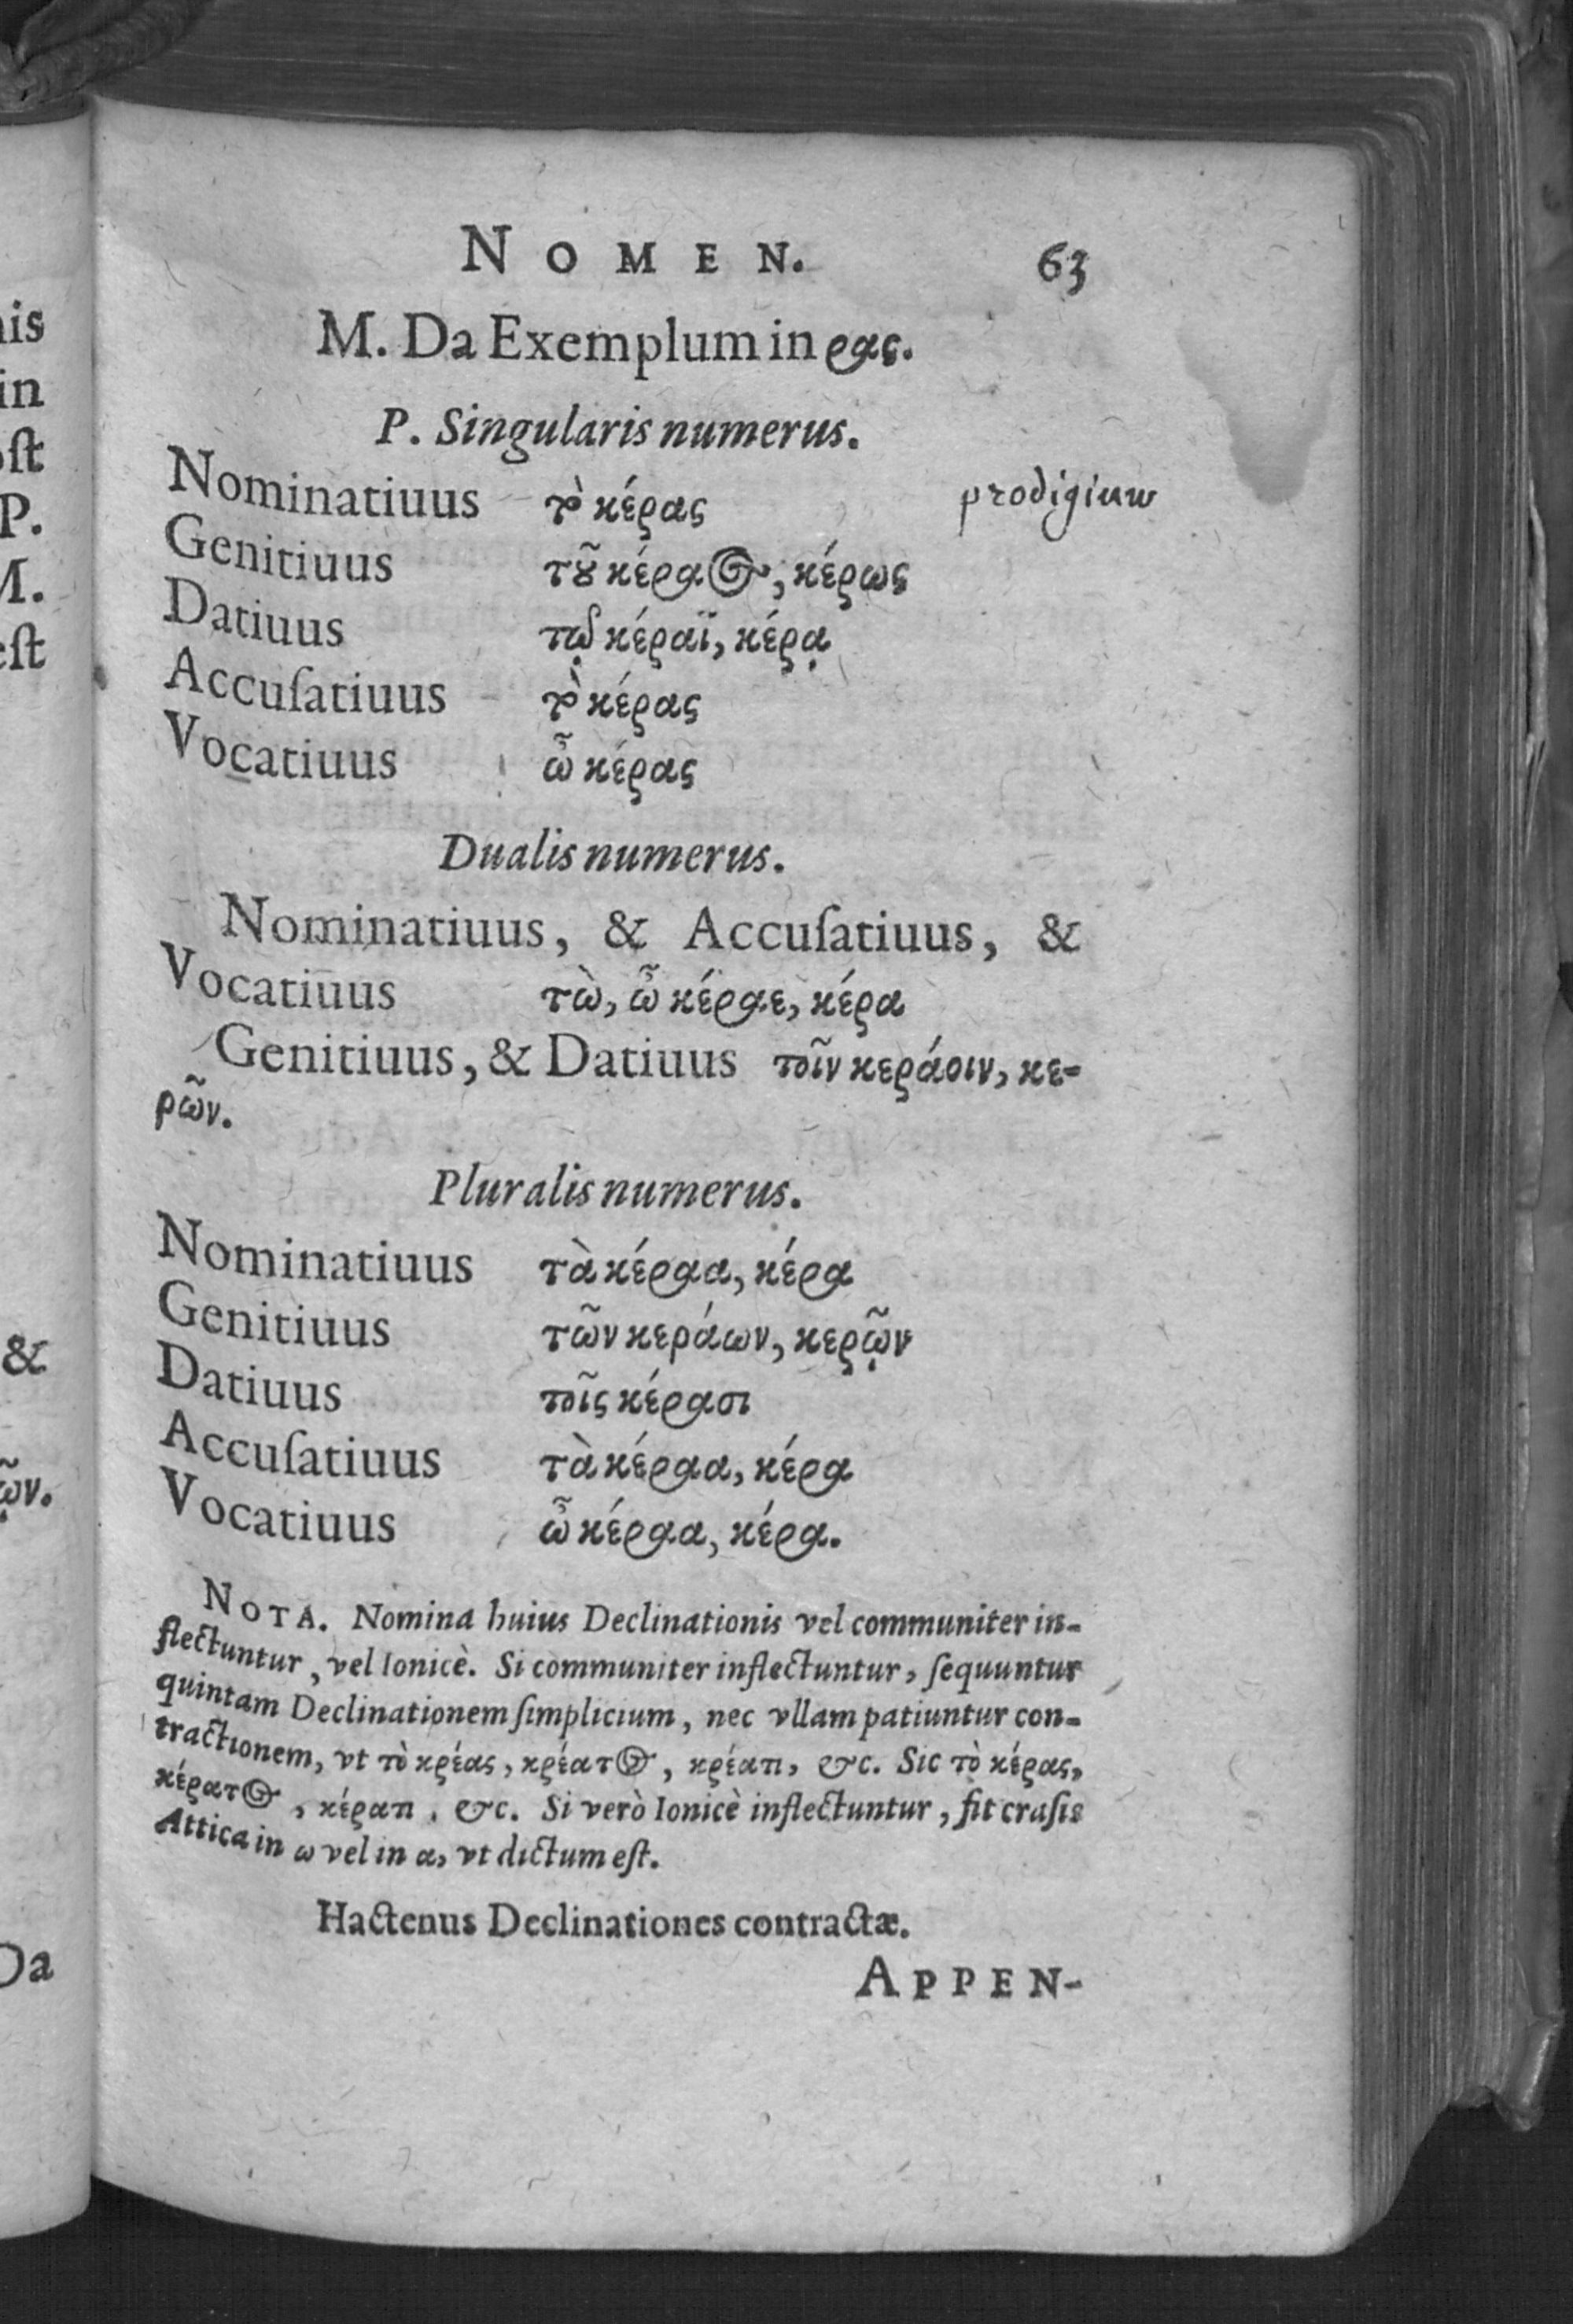 NOMEN. 63
M. Da Exemplum in ρας.
P. Singularis numerus.
Nominatiuus τὸ κέρας prodigium
Genitiuus τοῦ κέραος, κέρως
Datiuus τῷ κέραϊ, κέρᾳ
Accuſatiuus τὸ κέρας
Vocatiuus ὦ κέρας
Dualis numerus.
Nominatiuus, & Accuſatiuus, &
Vocatiuus τὼ, ὦ κέραε, κέρα
Genitiuus, & Datiuus τοῖν κεράοιν, κε-
ρῶν.
Pluralis numerus.
Nominatiuus τὰ κέραα, κέρα
Genitiuus τῶν κεράων, κερῷν
Datiuus τοῖς κέρασι
Accuſatiuus τὰ κέραα, κέρα
Vocatiuus ὦ κέραα, κέρα.
NOTA. Nomina huius Declinationis vel communiter in-
flectuntur, vel Ionicè. Si communiter inflectuntur, ſequuntur
quintam Declinationem ſimplicium, nec vllam patiuntur con-
tractionem, vt τὸ κρέας, κρέατος, κρέατι, &c. Sic τὸ κέρας,
κέρατος, κέρατι, &c. Si verò Ionicè inflectuntur, fit craſis
Attica in ω vel in α, vt dictum eſt.
Hactenus Declinationes contractæ.
APPEN-
nis
in
oſt
P.
M.
eſt
&
ῷν.
Da